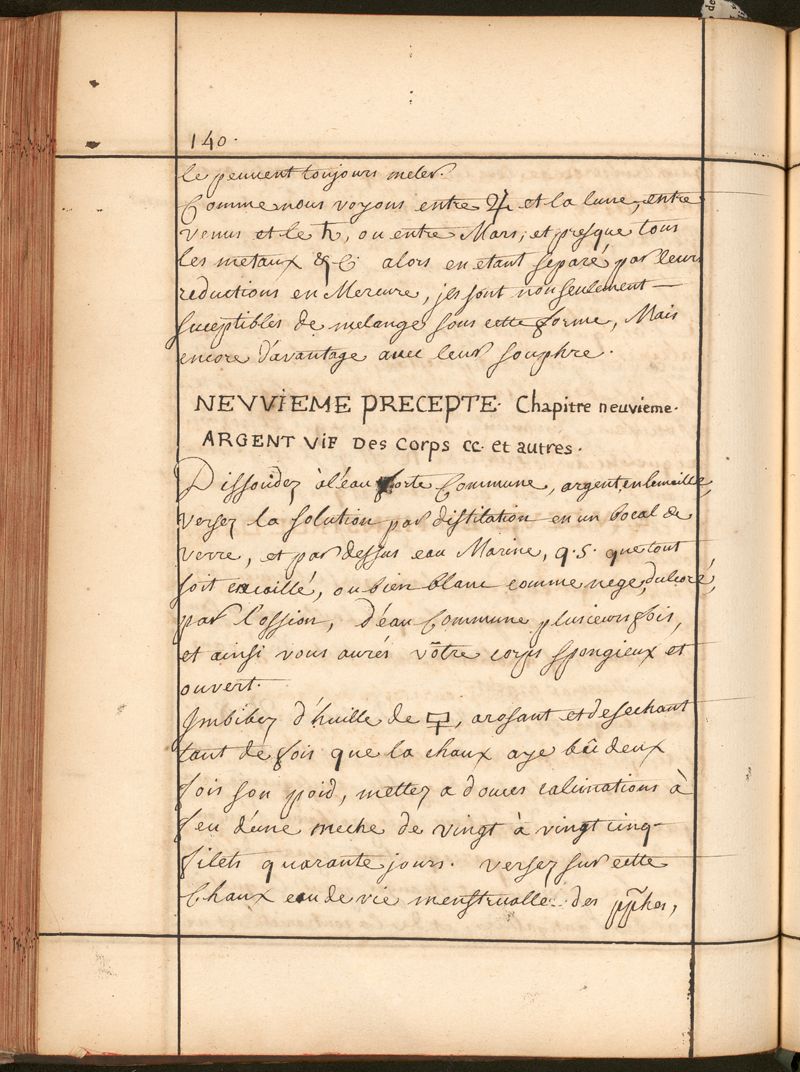 140.
le peuvent toujours meler.
Comme nous voyons entre ♃ et la lune, entre
venus et le ♄, ou entre Mars, et presque tous
les metaux &c. alors en etant separé, par leurs
reductions en Mercure, ils sont non seulement —
suceptibles de melange sous cette forme, Mais
encore d'avantage avec leur souphre.
NEVVIEME PRECEPTE. Chapitre neuvieme.
ARGENT VIF Des Corps cc. et autres.
Dissoudez à l'eau forte Commune, argent, en lemaille,
versez la solution par distilation en un bocal de
verre, et par dessus eau Marine, q.s. que tout
soit encaillé, ou bien blanc comme nege, dulcoré,
par l'ossion, d'eau Commune plusieurs fois,
et ainsi vous aurés vôtre corps spongieux et
ouvert.
Jmbibez d'huille de 🜿, arosant et desechant
tant de fois que la chaux aye bû deux
fois son poid, mettez a douces calcinations à
feu d'une meche de vingt à vingt cinq
filets quarante jours. versez sur cette
Chaux eau de vie menstrualle des pphes,